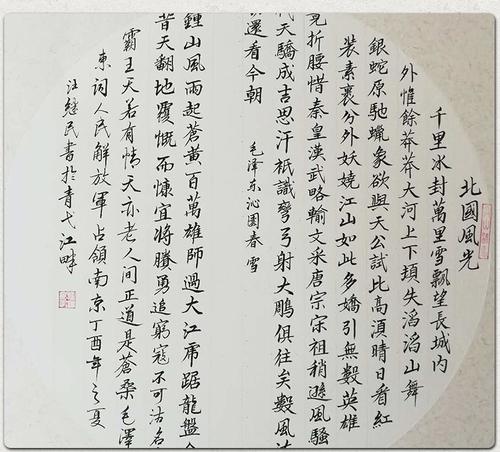 北國風光
千里冰封萬里雪飄望長城內
外惟餘莽莽大河上下頓失滔滔山舞
銀蛇原馳蠟象欲與天公試比高須晴日看紅
裝素裹分外妖嬈江山如此多嬌引無數英雄
折腰惜秦皇漢武略輸文采唐宗宋祖稍遜風騷
代天驕成吉思汗祇識彎弓射大雕俱往矣數風
還看今朝 毛泽东沁園春雪
鍾山風雨起蒼黃百萬雄師過大江虎踞龍盤今
昔天翻地覆慨而慷宜將勝勇追窮寇不可沽名
霸王天若有情天亦老人間正道是蒼桑毛澤
東詞人民解放軍占領南京丁酉年之夏
汪民書於青弋江畔